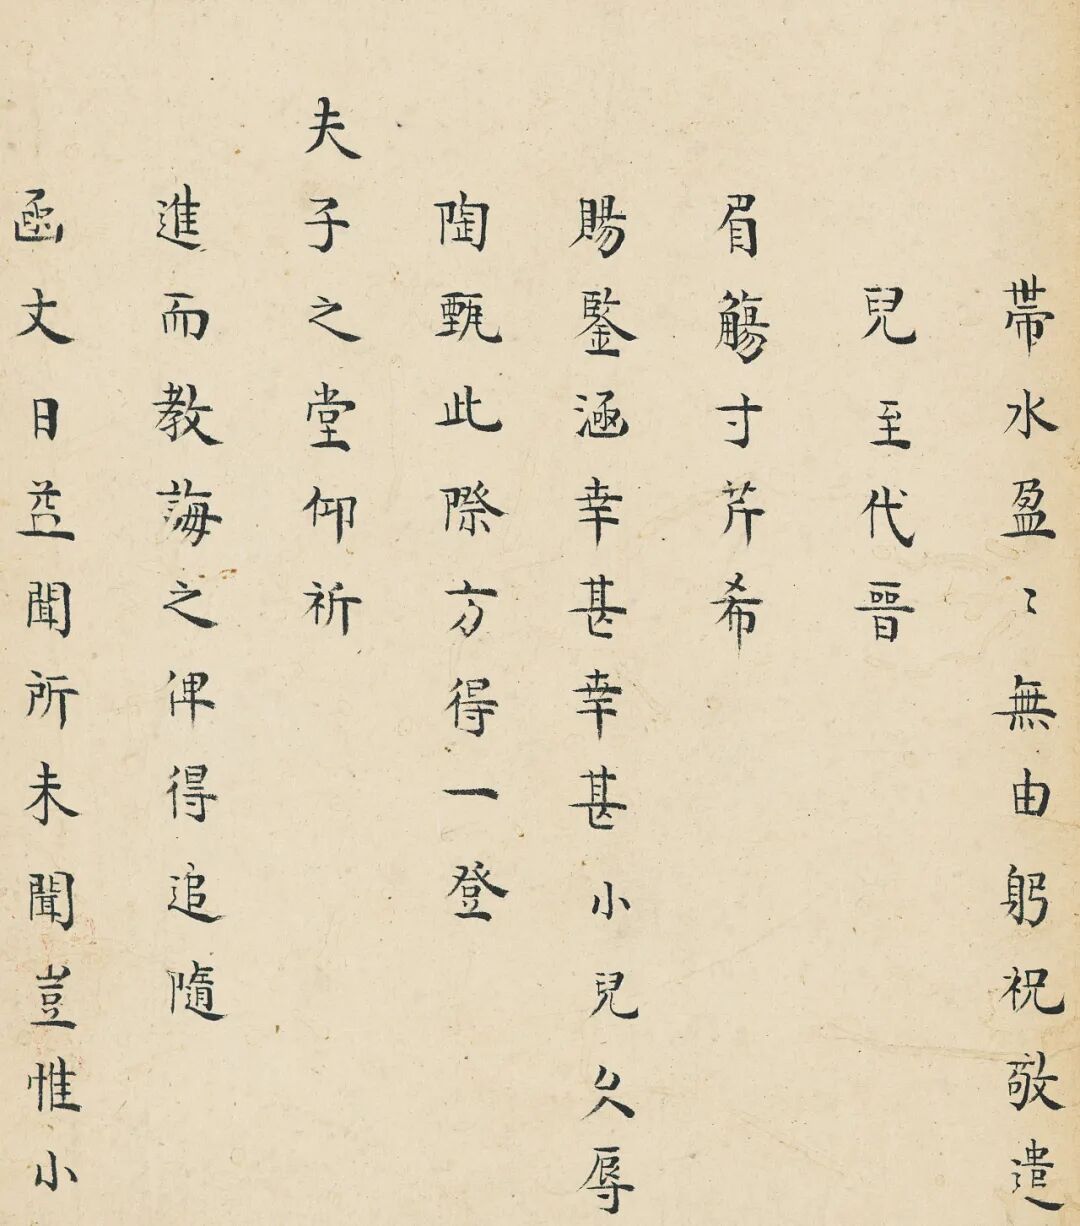 帶水盈〻無由躬祝敬遣
兒至代晉
眉觴寸芹希
賜鑒涵幸甚幸甚小兒久辱
陶甄此際方得一登
夫子之堂仰祈
進而教誨之俾得追隨
函丈日益聞所未聞豈惟小